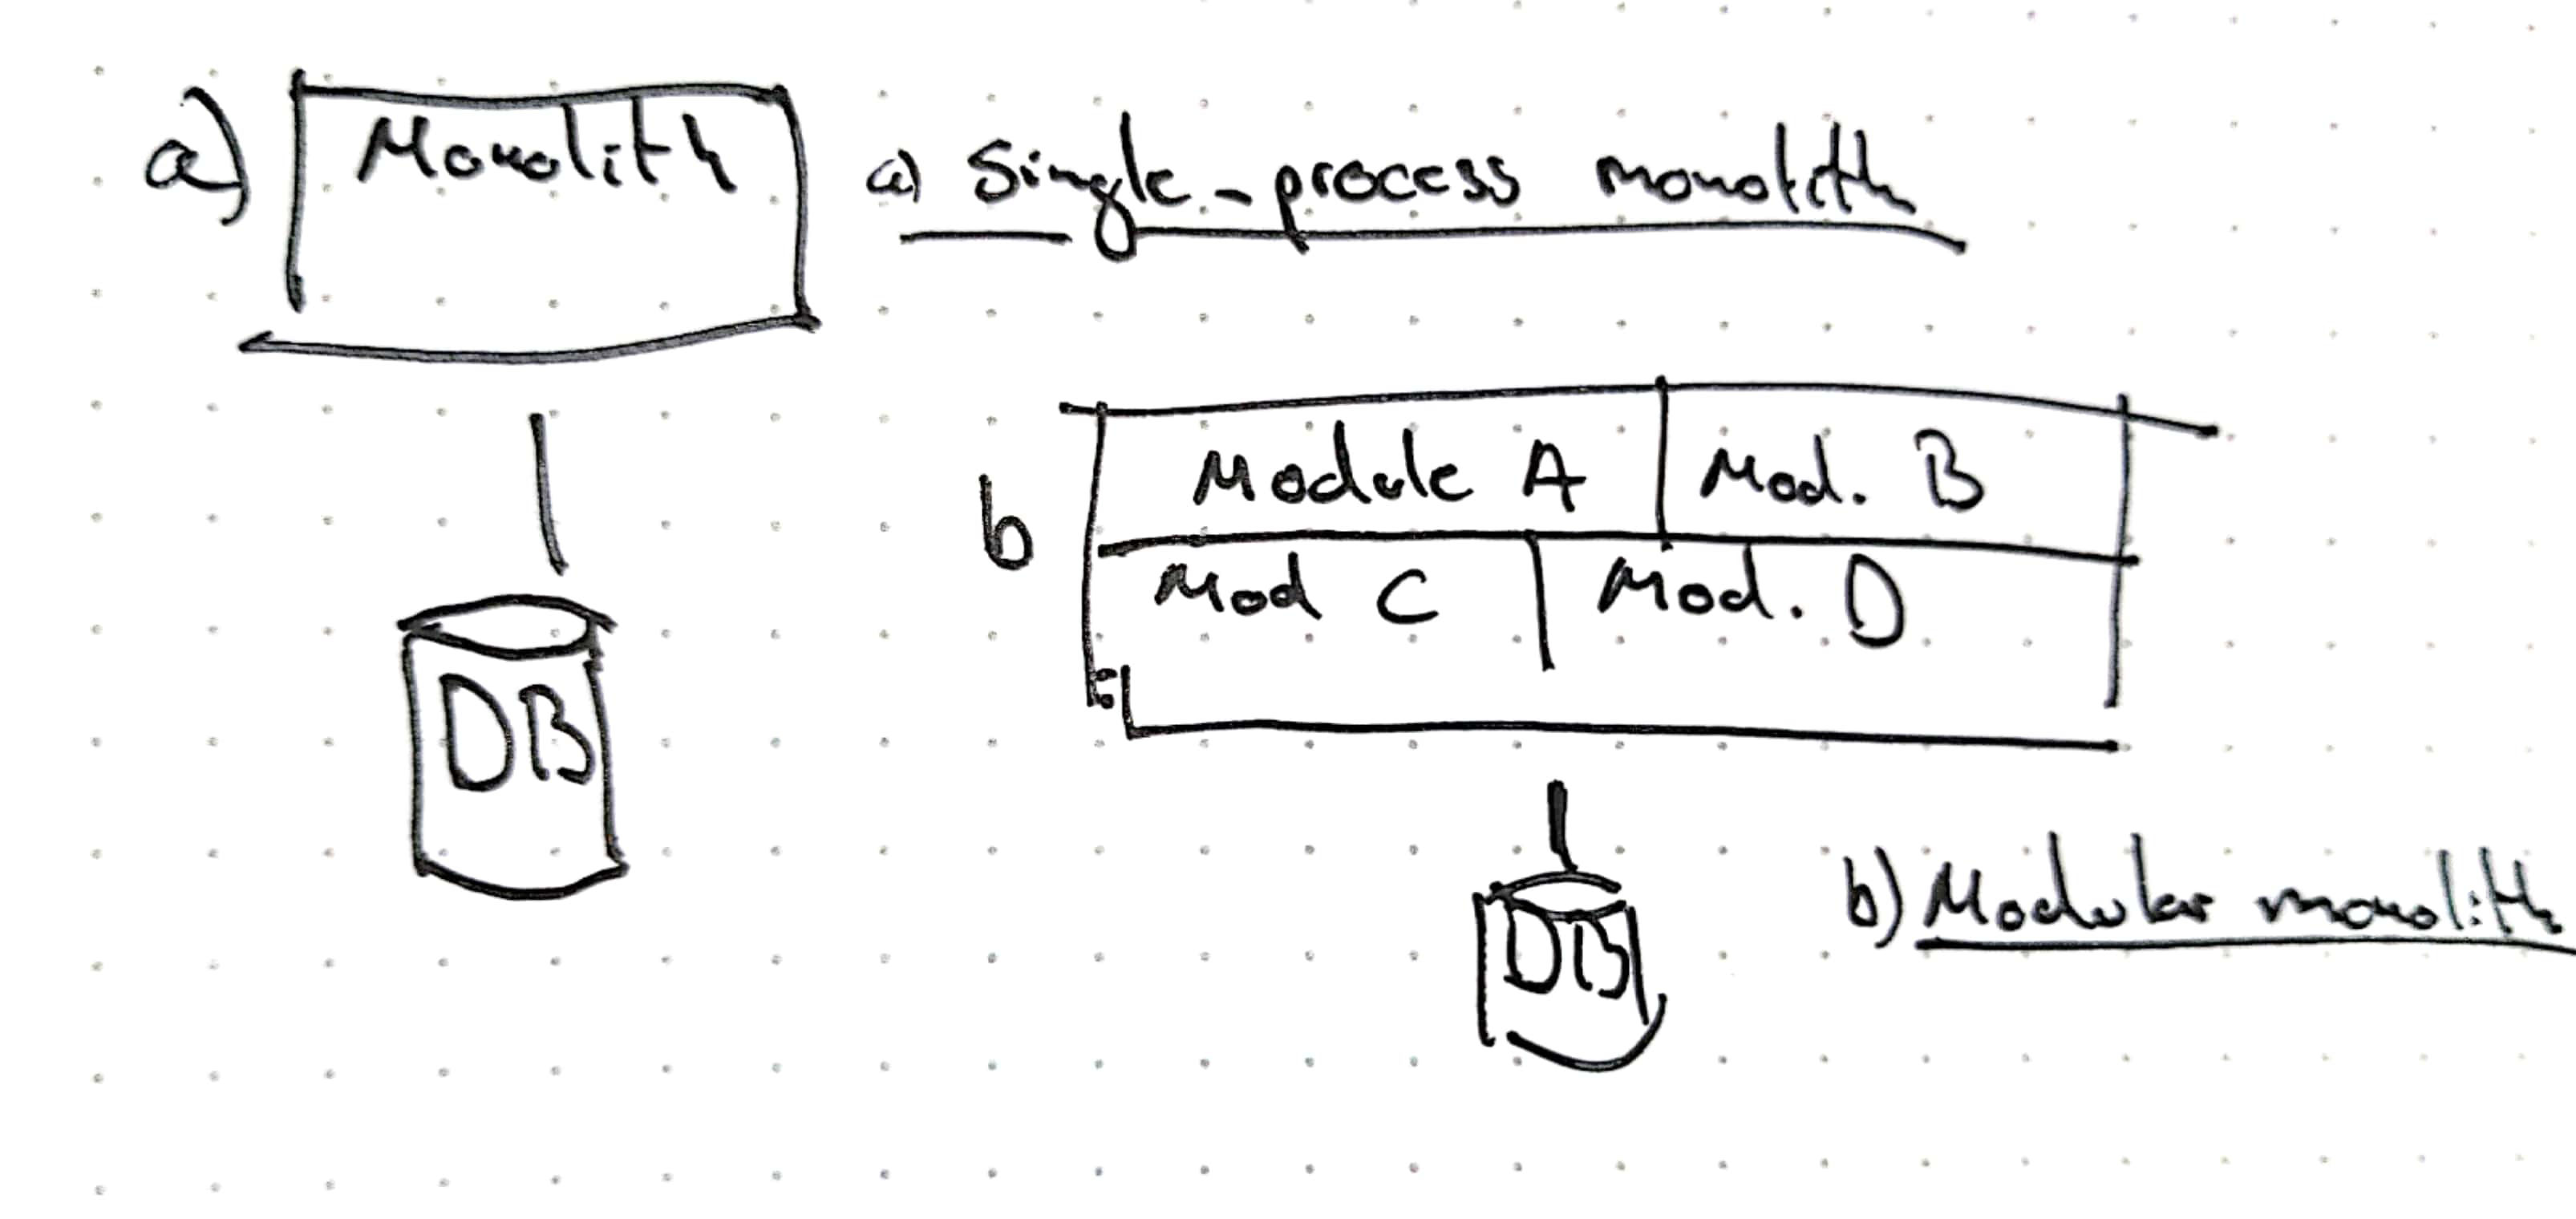 a) Monolith
a) Single-process monolith
b
Module A
Mod. B
Mod C
Mod. D
DB
DB
b) Modular monolith